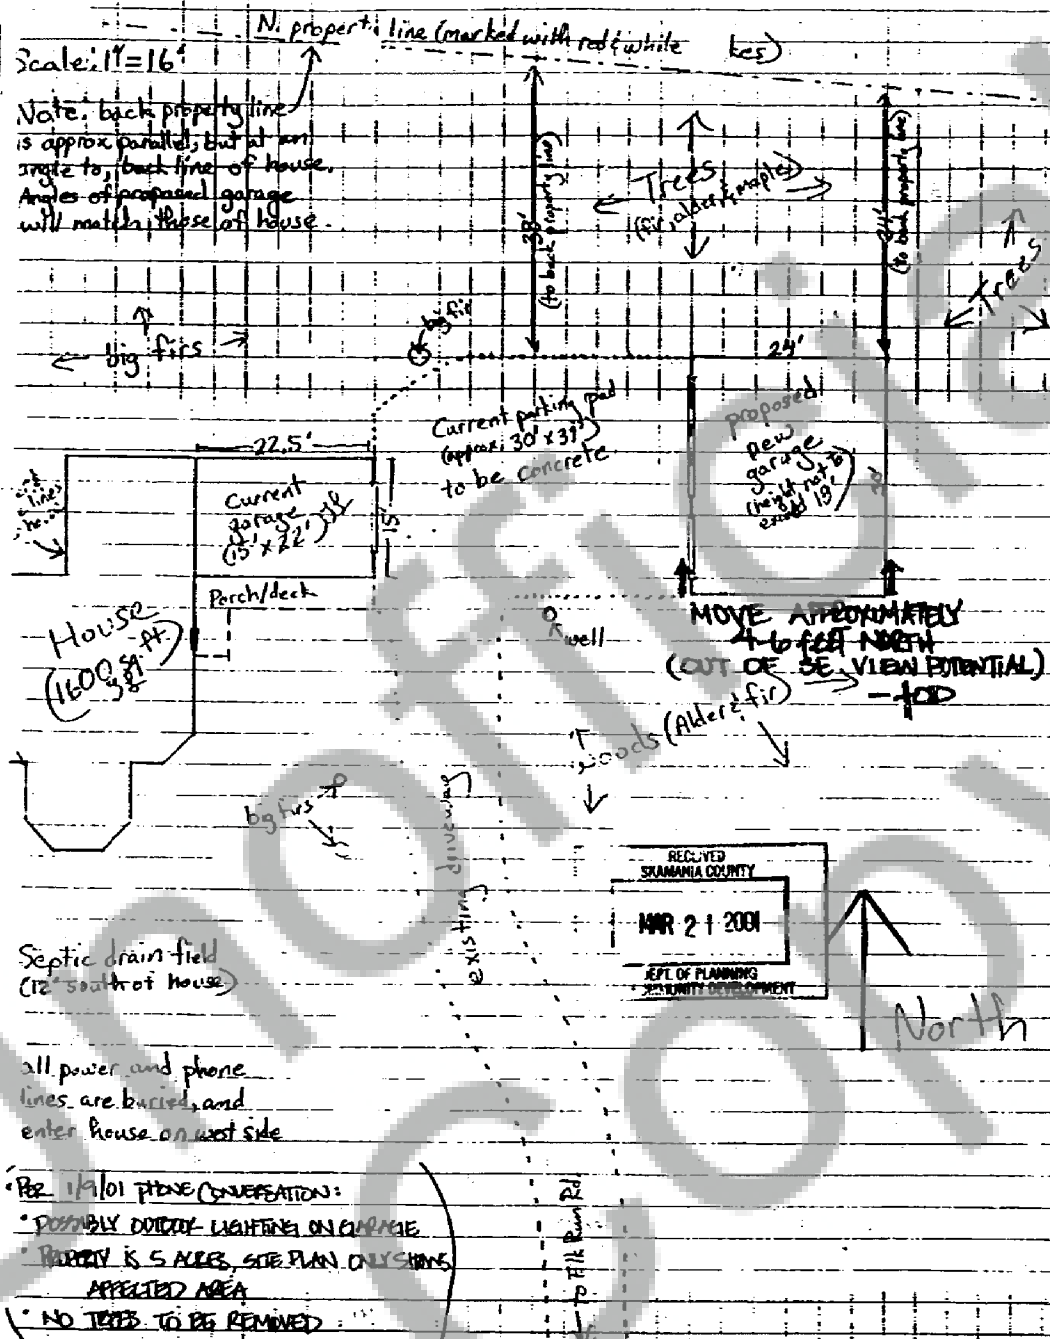 N. property line (marked with red & white kes)
Scale: 1"=16'
Note: back property line
is approx parallel, but at an
angle to, back line of house.
Angles of proposed garage
will match those of house.
38'
(to back property line)
Trees
(fir, alder & maple)
(to back property line)
Trees
big firs
big fir
24'
Current parking pad
(approx. 30' x 39')
to be concrete
proposed
new
garage
(height not to
exceed 18')
22.5'
Current
garage
(15' x 22')
15'
lines
Porch/deck
House
(1600 sq. ft)
well
MOVE APPROXIMATELY
4-6 feet NORTH
(OUT OF SE VIEW POTENTIAL)
woods (Alder & fir)
big firs
existing driveway
RECEIVED
SKAMANIA COUNTY
MAR 21 2001
DEPT. OF PLANNING
COMMUNITY DEVELOPMENT
North
Septic drain field
(12' south of house)
all power and phone
lines are buried, and
enter house on west side
PER 1/9/01 PHONE CONVERSATION:
• POSSIBLY OUTDOOR LIGHTING ON GARAGE
• PROPERTY IS 5 ACRES, SITE PLAN ONLY SHOWS
AFFECTED AREA
• NO TREES TO BE REMOVED
to Elk Run Rd
Unofficial
Copy